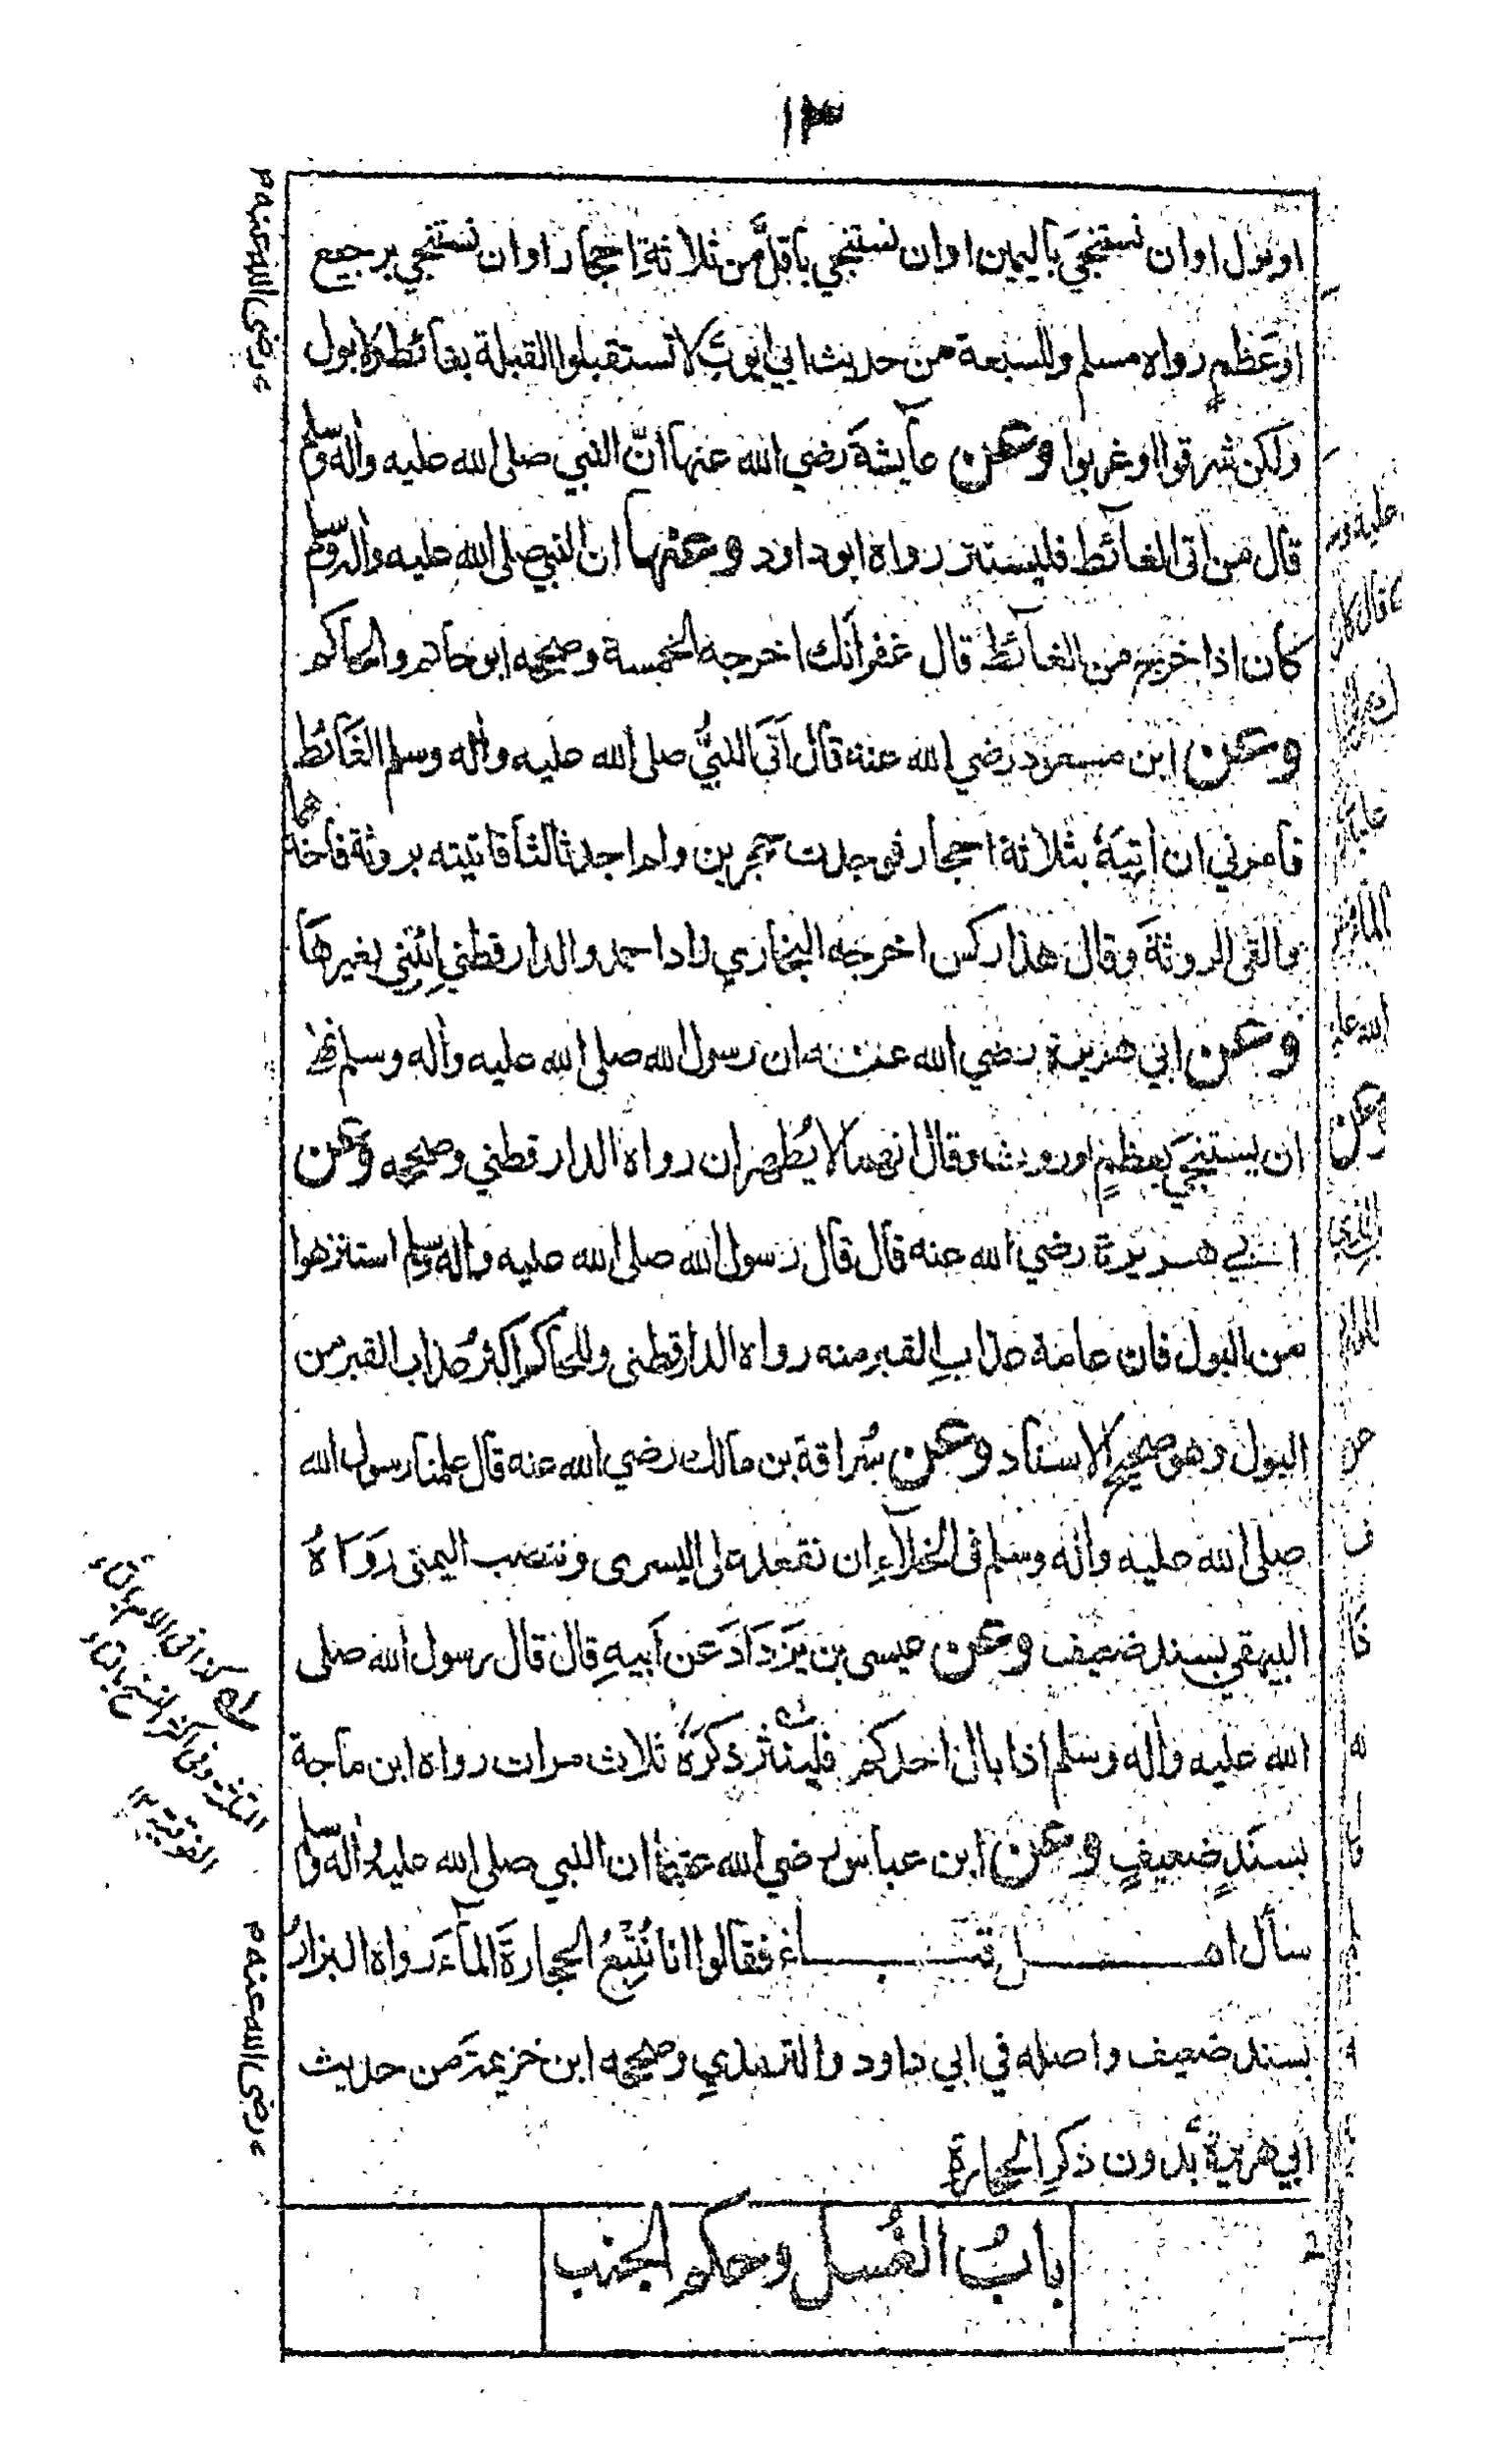 ١٣
او بول او ان نستنجيَ باليمين او ان نستنجي باقلَّ من ثلاثةِ احجار او ان نستنجي برجيع
اوعظمٍ رواه مسلم وللسبعة من حديث ابي ايوبَ لا تستقبلوا القبلة بغائط ولا بول
ولكن شرقوا او غربوا وعن عآيشةَ رضي الله عنها انّ النبي صلى الله عليه واٰله وسلم
قال من اتى الغآئط فليستتر رواه ابو داود وعنها ان النبي صلى الله عليه واٰله وسلم
كان اذا خرج من الغآئط قال غفرانك اخرجه الخمسة وصححه ابو حاتم والحاكم
وعن ابن مسعود رضي الله عنه قال اَتَى النبيُّ صلى الله عليه واٰله وسلم الغَآئطَ
فامرني ان اٰتِيَهٗ بثلاثة احجار فوجدت حجرين ولم اجد ثالثا فاتيته بروثة فاخذهما
والقى الروثةَ وقال هذا ركس اخرجه البخاري زاد احمد والدارقطني ائتِني بغيرهَا
وعن ابي هريرة رضي الله عنه ان رسول الله صلى الله عليه واٰله وسلم نهٰى
ان يستنجيَ بعظمٍ او روث وقال انهما لا يُطهران رواه الدارقطني وصححه وعن
ابي هريرة رضي الله عنه قال قال رسول الله صلى الله عليه واٰله وسلم استنزهوا
من البول فان عامة عذابِ القبر منه رواه الدارقطني وللحاكم اكثرُ عذاب القبر من
البول وهو صحيح الاسناد وعن سُراقة بن مالك رضي الله عنه قال علمنا رسول الله
صلى الله عليه واٰله وسلم فى الخلآءِ ان نقعد على اليسرى وننصب اليمنى رَوَاهُ
البيهقي بسند ضعيف وعن عيسى بن يَزدَادَ عن اَبيهِ قال قال رسول الله صلى
الله عليه واٰله وسلم اذا بال احدكم فلينثر ذكرَهٗ ثلاث مرات رواه ابن ماجة
بسَندٍ ضعيفٍ وعن ابن عباس رضي الله عنهما ان النبي صلى الله عليه واٰله وسلم
سأل اهل قباء فقالوا انا نُتْبِعُ الحجارةَ المآءَ رواه البزارُ
بسند ضعيف واصله في ابي داود والترمذي وصححه ابن خزيمةَ من حديث
ابي هريرةَ بدون ذكرِ الحجارةِ
بابُ الغُسل وحكم الجنب
ع رضى الله عنه م
ع رضى الله عنه م
وعن